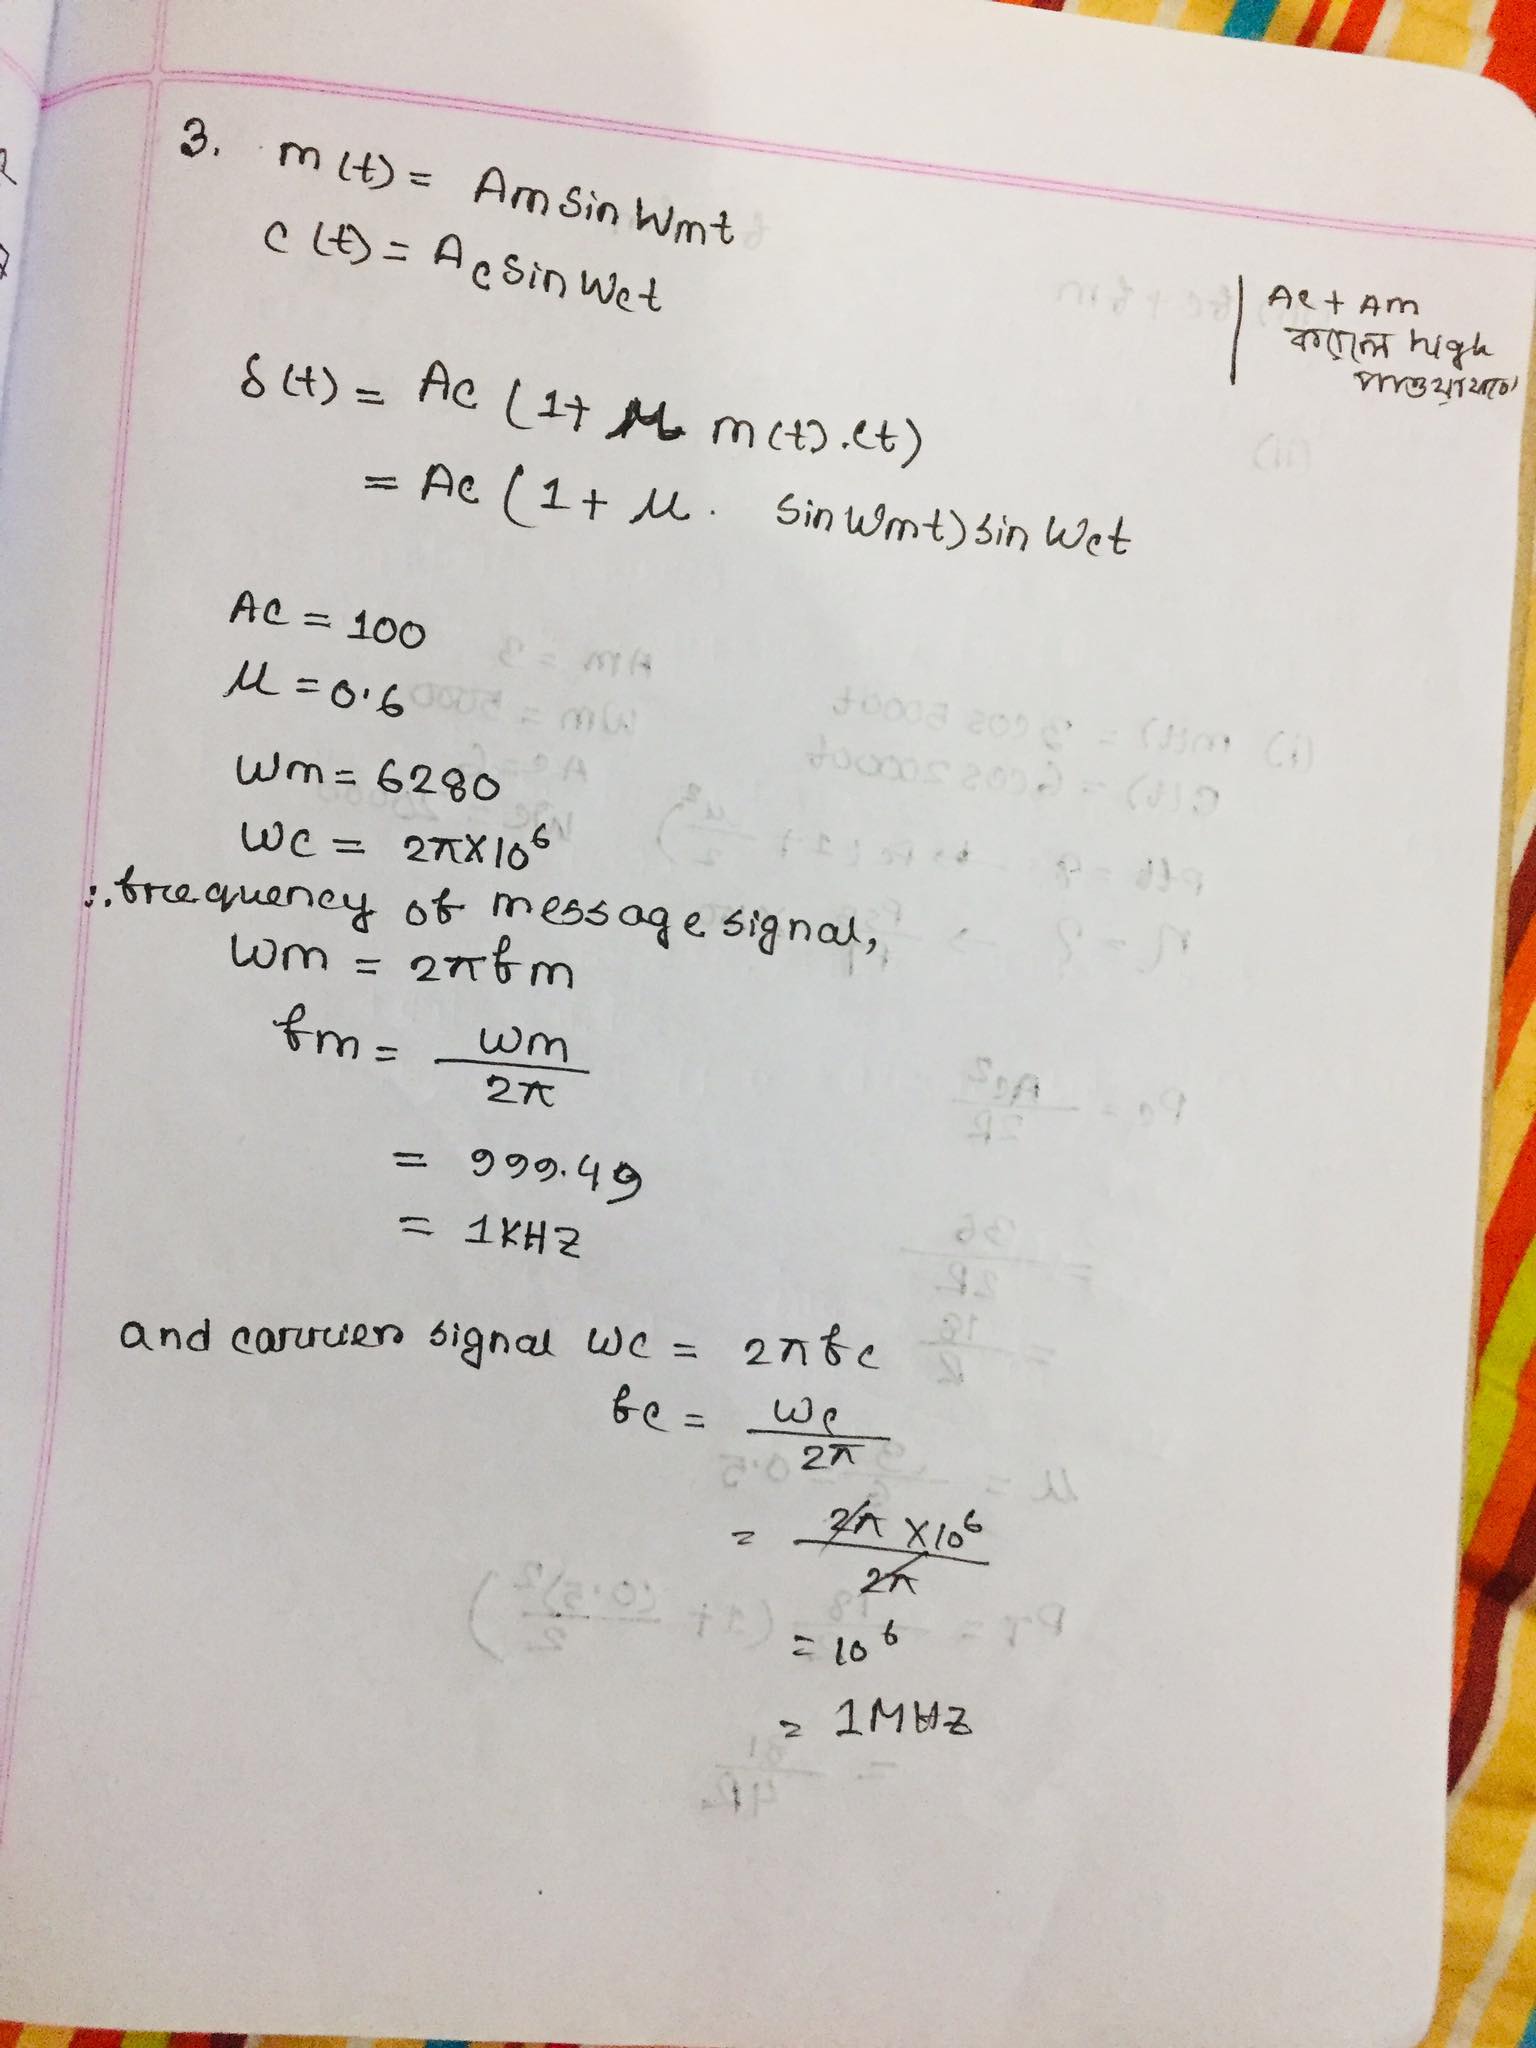 3. m(t) = Am Sin Wmt
c(t) = Ac Sin Wct
Ac + Am
করলে high
পাওয়া যাবে
s(t) = Ac (1 + μ m(t).ct)
= Ac (1 + μ. Sin Wmt) sin Wct
Ac = 100
μ = 0.6
Wm = 6280
Wc = 2π×10⁶
∴ frequency of message signal,
Wm = 2πfm
fm = Wm / 2π
= 999.49
= 1KHZ
and carrier signal Wc = 2πfc
fc = Wc / 2π
= 2π ×10⁶ / 2π
= 10⁶
= 1MHZ